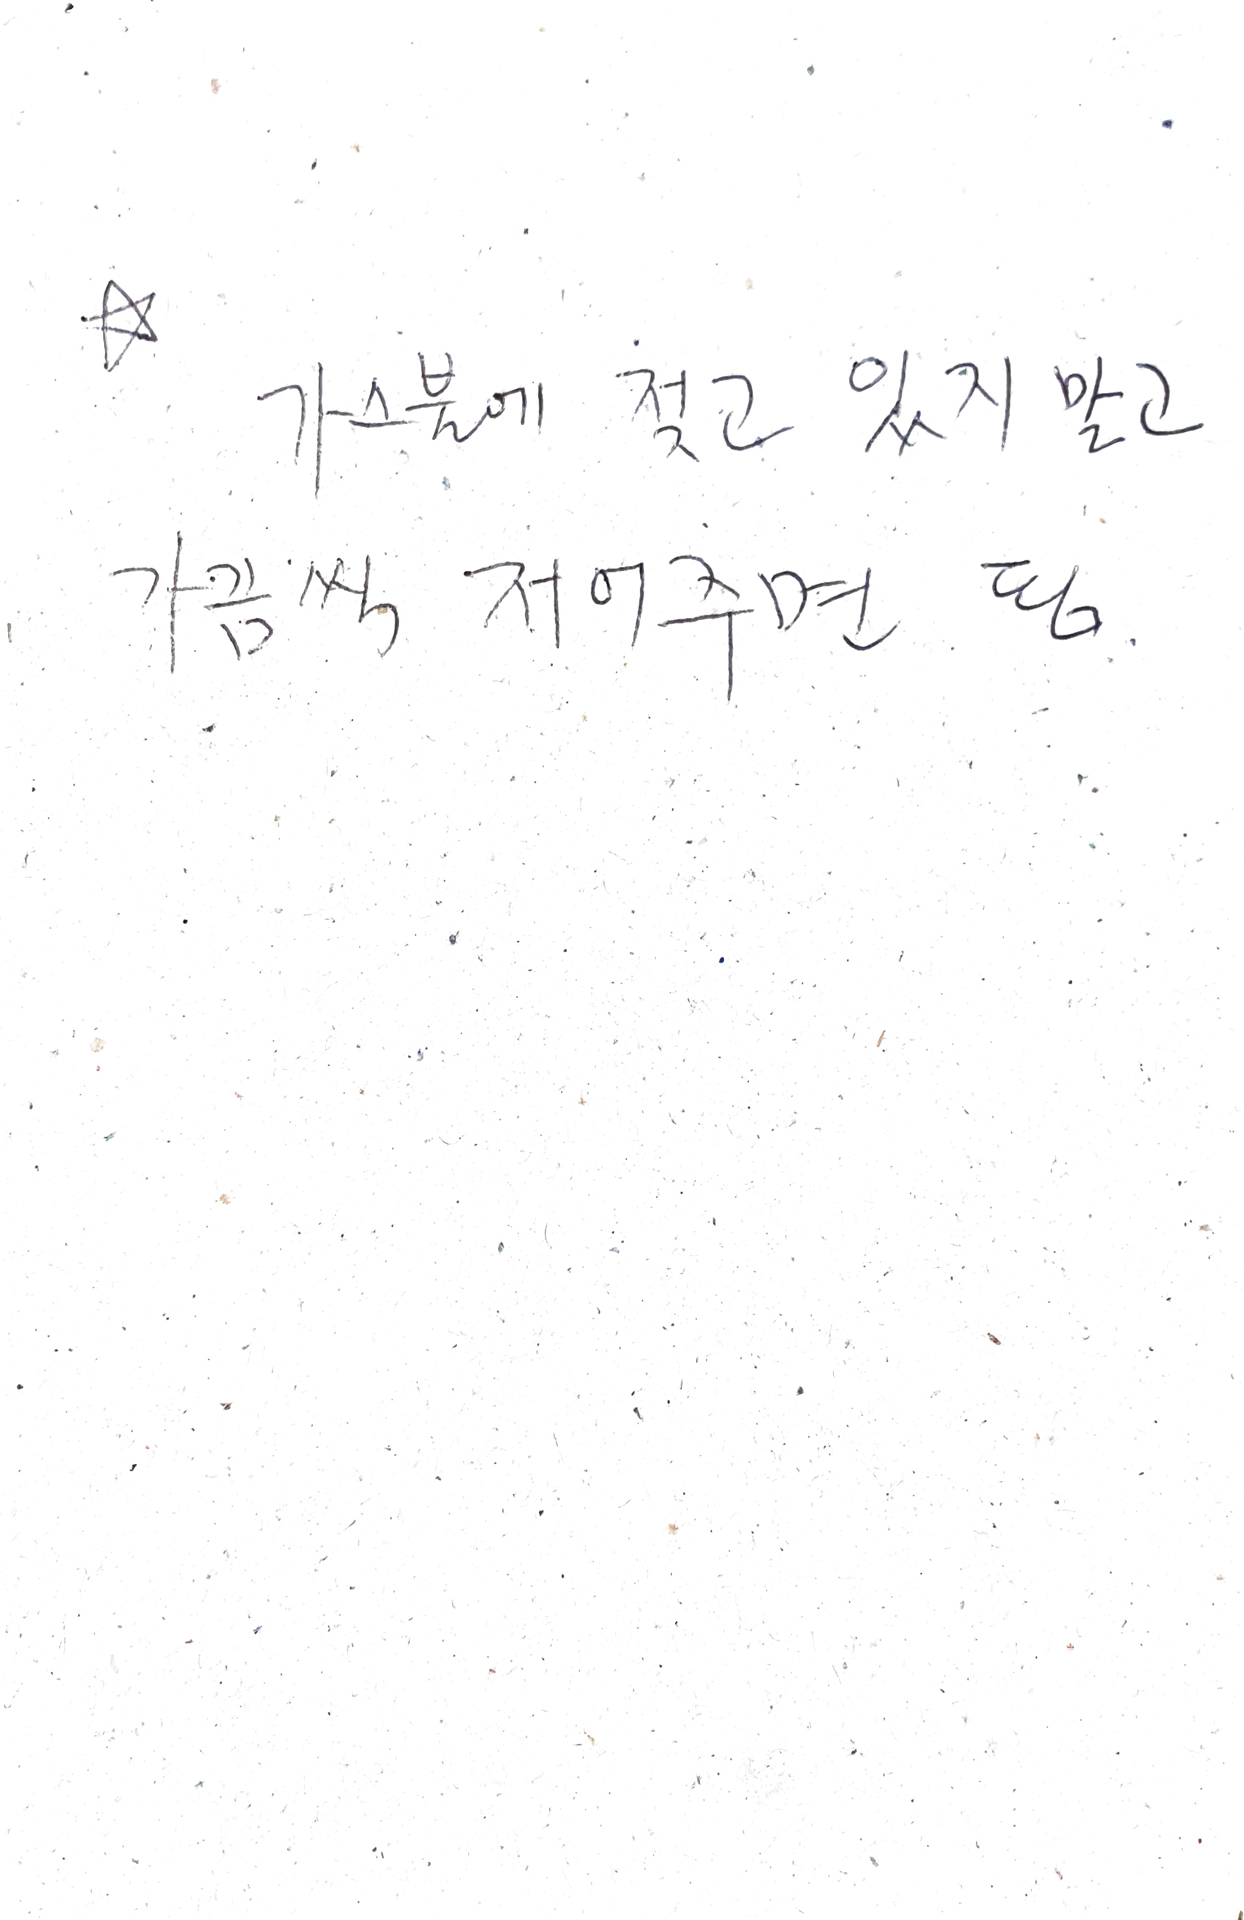 ☆ 가스불에 젖고 있지말고
가끔씩 저어주면 됨.